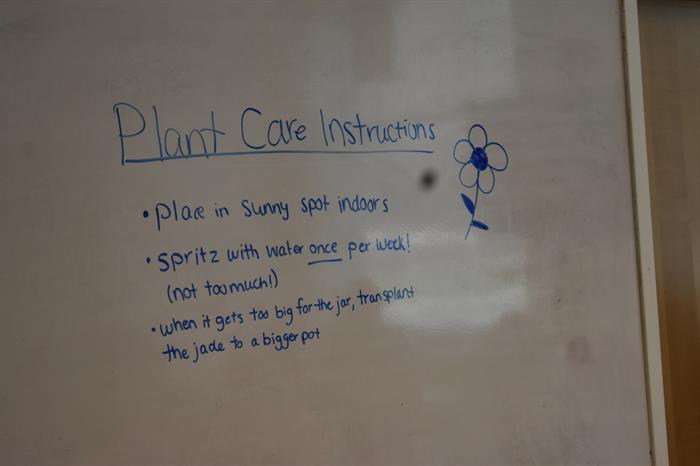 Plant Care Instructions
• Place in sunny spot indoors
• Spritz with water once per week!
(not too much!)
• when it gets too big for the jar, transplant
the jade to a bigger pot